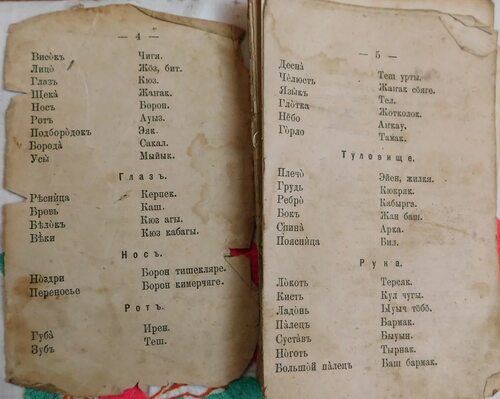 — 4 —
Висо̀къ Чигя.
Лицо̀ Жӧз, бит.
Глазъ Кюз.
Щека̀ Жаҥак.
Носъ Борон.
Ротъ Ауыз.
Подборо̀докъ Эяк.
Борода̀ Сакал.
Усы̀ Мыйык.
Глазъ.
Рѣснѝца Керпек.
Бровь Каш.
Бѣло̀къ Кюз агы.
Вѣ̀ки Кюз кабагы.
Носъ.
Но̀здри Борон тишекляре.
Перено̀сье Борон кимерчяге.
Ротъ.
Губа̀ Ирен.
Зубъ Теш.
— 5 —
Десна̀ Теш урты.
Чѐлюсть Жаҥак сӧяге.
Язы̀къ Тел.
Гло̀тка Жотколок.
Нёбо Аҥкау.
Го̀рло Тамак.
Туловище.
Плечо̀ Эйен, жилкя.
Грудь Кюкряк.
Ребро̀ Кабырга.
Бокъ Жан баш.
Спина̀ Арка.
Пояснѝца Бил.
Рука.
Ло̀коть Терсяк.
Кисть Кул чугы.
Ладо̀нь Ыуыч тӧбӧ.
Па̀лецъ Бармак.
Суста̀въ Быуын.
Но̀готь Тырнак.
Большо̀й па̀лецъ Баш бармак.